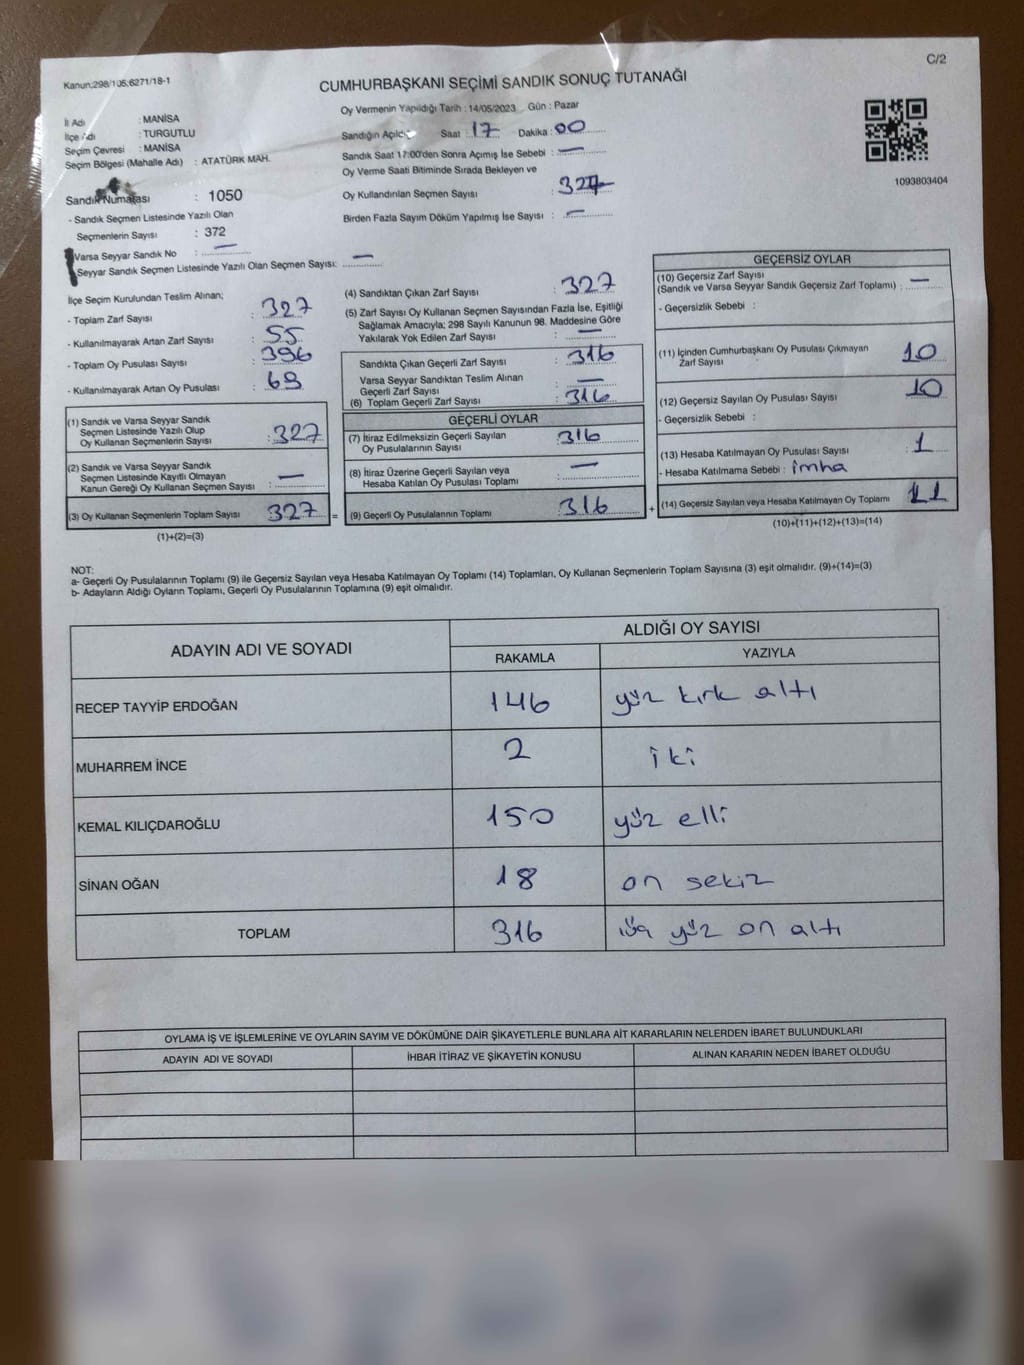 C/2
Kanun:298/105;6271/18-1
CUMHURBAŞKANI SEÇİMİ SANDIK SONUÇ TUTANAĞI
Oy Vermenin Yapıldığı Tarih : 14/05/2023 Gün : Pazar
İl Adı : MANİSA
İlçe Adı : TURGUTLU
Seçim Çevresi : MANİSA
Seçim Bölgesi (Mahalle Adı) : ATATÜRK MAH.
Sandığın Açıldığı Saat 17 Dakika : 00
Sandık Saat 17:00'den Sonra Açımış İse Sebebi : —
Oy Verme Saati Bitiminde Sırada Bekleyen ve
Oy Kullandırılan Seçmen Sayısı : 327
Birden Fazla Sayım Döküm Yapılmış İse Sayısı : —
1093803404
Sandık Numarası : 1050
- Sandık Seçmen Listesinde Yazılı Olan
Seçmenlerin Sayısı : 372
Varsa Seyyar Sandık No : —
Seyyar Sandık Seçmen Listesinde Yazılı Olan Seçmen Sayısı: —
İlçe Seçim Kurulundan Teslim Alınan;
- Toplam Zarf Sayısı : 327
- Kullanılmayarak Artan Zarf Sayısı : 55
- Toplam Oy Pusulası Sayısı : 396
- Kullanılmayarak Artan Oy Pusulası : 69
(1) Sandık ve Varsa Seyyar Sandık
Seçmen Listesinde Yazılı Olup
Oy Kullanan Seçmenlerin Sayısı : 327
(2) Sandık ve Varsa Seyyar Sandık
Seçmen Listesinde Kayıtlı Olmayan
Kanun Gereği Oy Kullanan Seçmen Sayısı : —
(3) Oy Kullanan Seçmenlerin Toplam Sayısı 327 =
(1)+(2)=(3)
(4) Sandıktan Çıkan Zarf Sayısı : 327
(5) Zarf Sayısı Oy Kullanan Seçmen Sayısından Fazla İse, Eşitliği
Sağlamak Amacıyla; 298 Sayılı Kanunun 98. Maddesine Göre
Yakılarak Yok Edilen Zarf Sayısı : —
Sandıkta Çıkan Geçerli Zarf Sayısı : 316
Varsa Seyyar Sandıktan Teslim Alınan
Geçerli Zarf Sayısı : —
(6) Toplam Geçerli Zarf Sayısı : 316
GEÇERLİ OYLAR
(7) İtiraz Edilmeksizin Geçerli Sayılan
Oy Pusulalarının Sayısı : 316
(8) İtiraz Üzerine Geçerli Sayılan veya
Hesaba Katılan Oy Pusulası Toplamı : —
(9) Geçerli Oy Pusulalarının Toplamı 316 +
GEÇERSİZ OYLAR
(10) Geçersiz Zarf Sayısı
(Sandık ve Varsa Seyyar Sandık Geçersiz Zarf Toplamı) : —
- Geçersizlik Sebebi :
(11) İçinden Cumhurbaşkanı Oy Pusulası Çıkmayan
Zarf Sayısı 10
(12) Geçersiz Sayılan Oy Pusulası Sayısı 10
- Geçersizlik Sebebi :
(13) Hesaba Katılmayan Oy Pusulası Sayısı : 1
- Hesaba Katılmama Sebebi : imha
(14) Geçersiz Sayılan veya Hesaba Katılmayan Oy Toplamı 11
(10)+(11)+(12)+(13)=(14)
NOT:
a- Geçerli Oy Pusulalarının Toplamı (9) ile Geçersiz Sayılan veya Hesaba Katılmayan Oy Toplamı (14) Toplamları, Oy Kullanan Seçmenlerin Toplam Sayısına (3) eşit olmalıdır. (9)+(14)=(3)
b- Adayların Aldığı Oyların Toplamı, Geçerli Oy Pusulalarının Toplamına (9) eşit olmalıdır.
ADAYIN ADI VE SOYADI ALDIĞI OY SAYISI
RAKAMLA YAZIYLA
RECEP TAYYİP ERDOĞAN 146 yüz kırk altı
MUHARREM İNCE 2 iki
KEMAL KILIÇDAROĞLU 150 yüz elli
SİNAN OĞAN 18 on sekiz
TOPLAM 316 üç yüz on altı
OYLAMA İŞ VE İŞLEMLERİNE VE OYLARIN SAYIM VE DÖKÜMÜNE DAİR ŞİKAYETLERLE BUNLARA AİT KARARLARIN NELERDEN İBARET BULUNDUKLARI
ADAYIN ADI VE SOYADI İHBAR İTİRAZ VE ŞİKAYETİN KONUSU ALINAN KARARIN NEDEN İBARET OLDUĞU